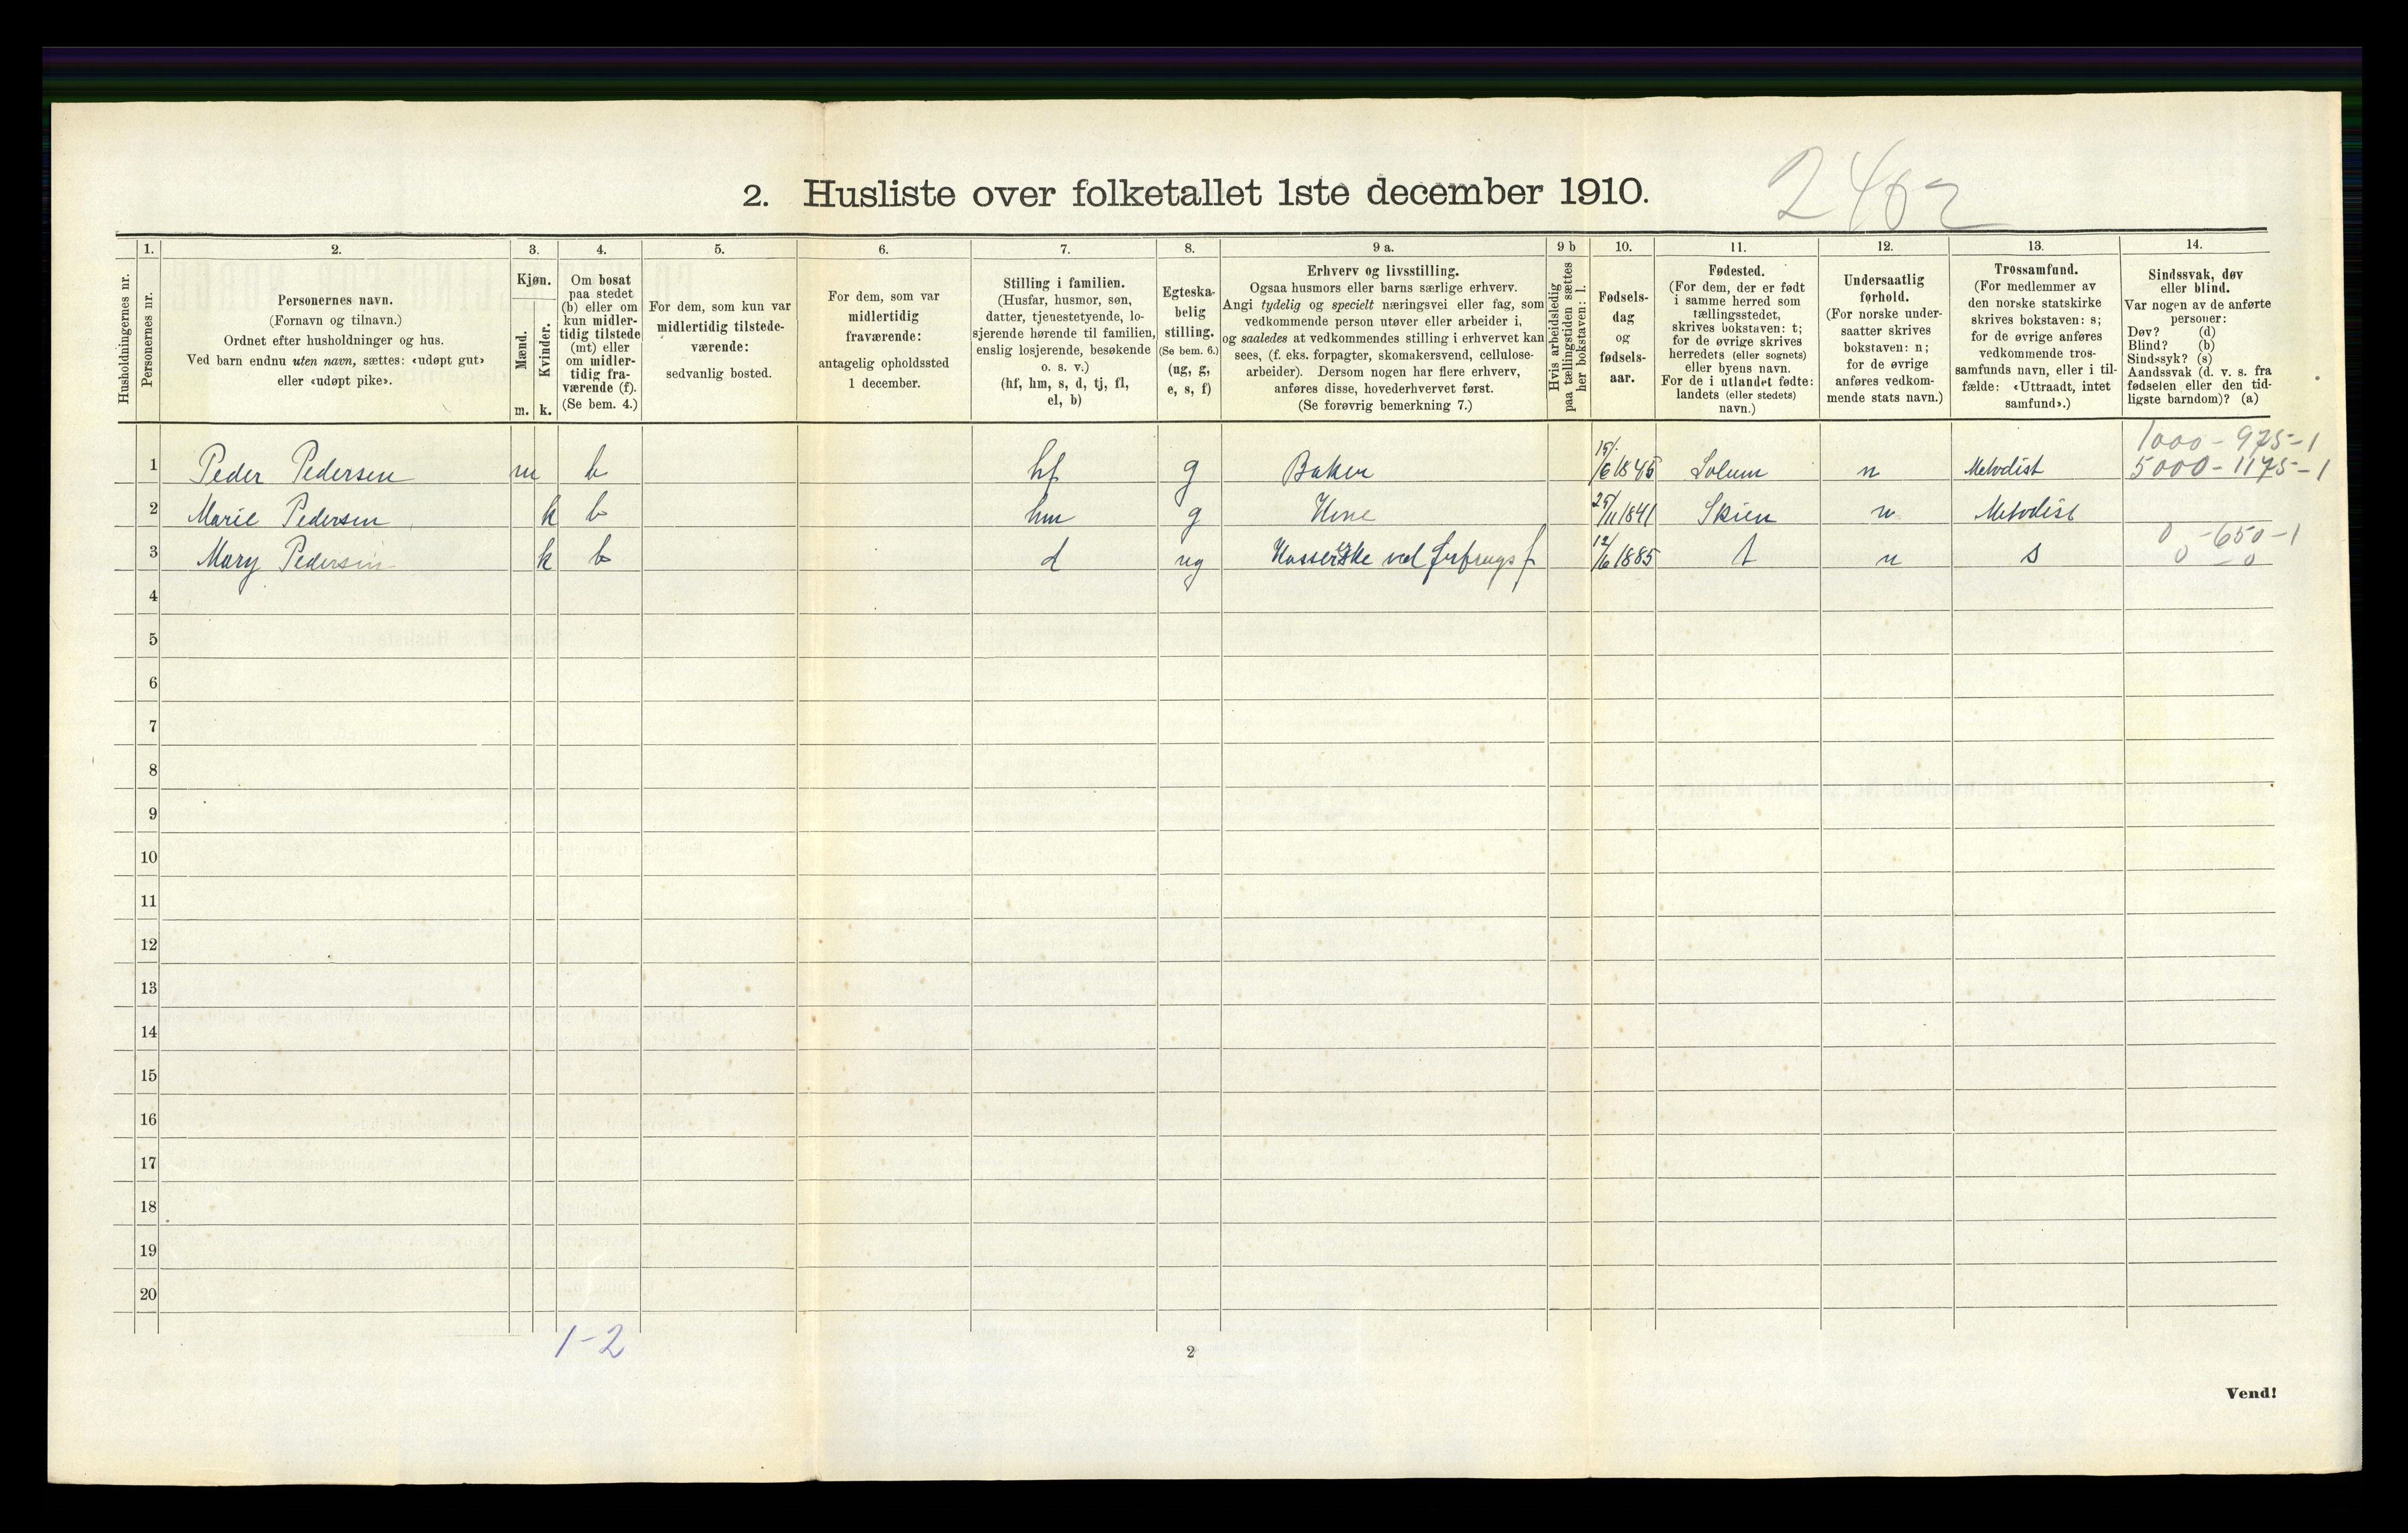 2. Husliste over folketallet 1ste december 1910.
2402
Husholdningernes nr.
1.
Personernes nr.
2.
Personernes navn.
(Fornavn og tilnavn.)
Ordnet efter husholdninger og hus.
Ved barn endnu uten navn, sættes: «udøpt gut»
eller «udøpt pike».
3.
Kjøn.
Mænd.
Kvinder.
m. k.
4.
Om bosat
paa stedet
(b) eller om
kun midler-
tidig tilstede
(mt) eller
om midler-
tidig fra-
værende (f).
(Se bem. 4.)
5.
For dem, som kun var
midlertidig tilstede-
værende:
sedvanlig bosted.
6.
For dem, som var
midlertidig
fraværende:
antagelig opholdssted
1 december.
7.
Stilling i familien.
(Husfar, husmor, søn,
datter, tjenestetyende, lo-
sjerende hørende til familien,
enslig losjerende, besøkende
o. s. v.)
(hf, hm, s, d, tj, fl,
el, b)
8.
Egteska-
belig
stilling.
(Se bem. 6.)
(ug, g,
e, s, f)
9 a.
Erhverv og livsstilling.
Ogsaa husmors eller barns særlige erhverv.
Angi tydelig og specielt næringsvei eller fag, som
vedkommende person utøver eller arbeider i,
og saaledes at vedkommendes stilling i erhvervet kan
sees, (f. eks. forpagter, skomakersvend, cellulose-
arbeider). Dersom nogen har flere erhverv,
anføres disse, hovederhvervet først.
(Se forøvrig bemerkning 7.)
9 b
Hvis arbeidsledig
paa tællingstiden sættes
her bokstaven: l.
10.
Fødsels-
dag
og
fødsels-
aar.
11.
Fødested.
(For dem, der er født
i samme herred som
tællingsstedet,
skrives bokstaven: t;
for de øvrige skrives
herredets (eller sognets)
eller byens navn.
For de i utlandet fødte:
landets (eller stedets)
navn.)
12.
Undersaatlig
forhold.
(For norske under-
saatter skrives
bokstaven: n;
for de øvrige
anføres vedkom-
mende stats navn.)
13.
Trossamfund.
(For medlemmer av
den norske statskirke
skrives bokstaven: s;
for de øvrige anføres
vedkommende tros-
samfunds navn, eller i til-
fælde: «Uttraadt, intet
samfund».)
14.
Sindssvak, døv
eller blind.
Var nogen av de anførte
personer:
Døv? (d)
Blind? (b)
Sindssyk? (s)
Aandssvak (d. v. s. fra
fødselen eller den tid-
ligste barndom)? (a)
1000 - 975 - 1
1 Peder Pedersen m b hf g Baker 15/6 1845 Solum n Metodist 5000 - 1175 - 1
2 Marie Pedersen k b hm g Kone 25/11 1841 Skien n Metodist
0 - 650 - 1
3 Mary Pedersen k b d ug Kasserske ved forbrugsf 12/6 1885 t n s 0 - 0
4
5
6
7
8
9
10
11
12
13
14
15
16
17
18
19
20
1-2
2
Vend!